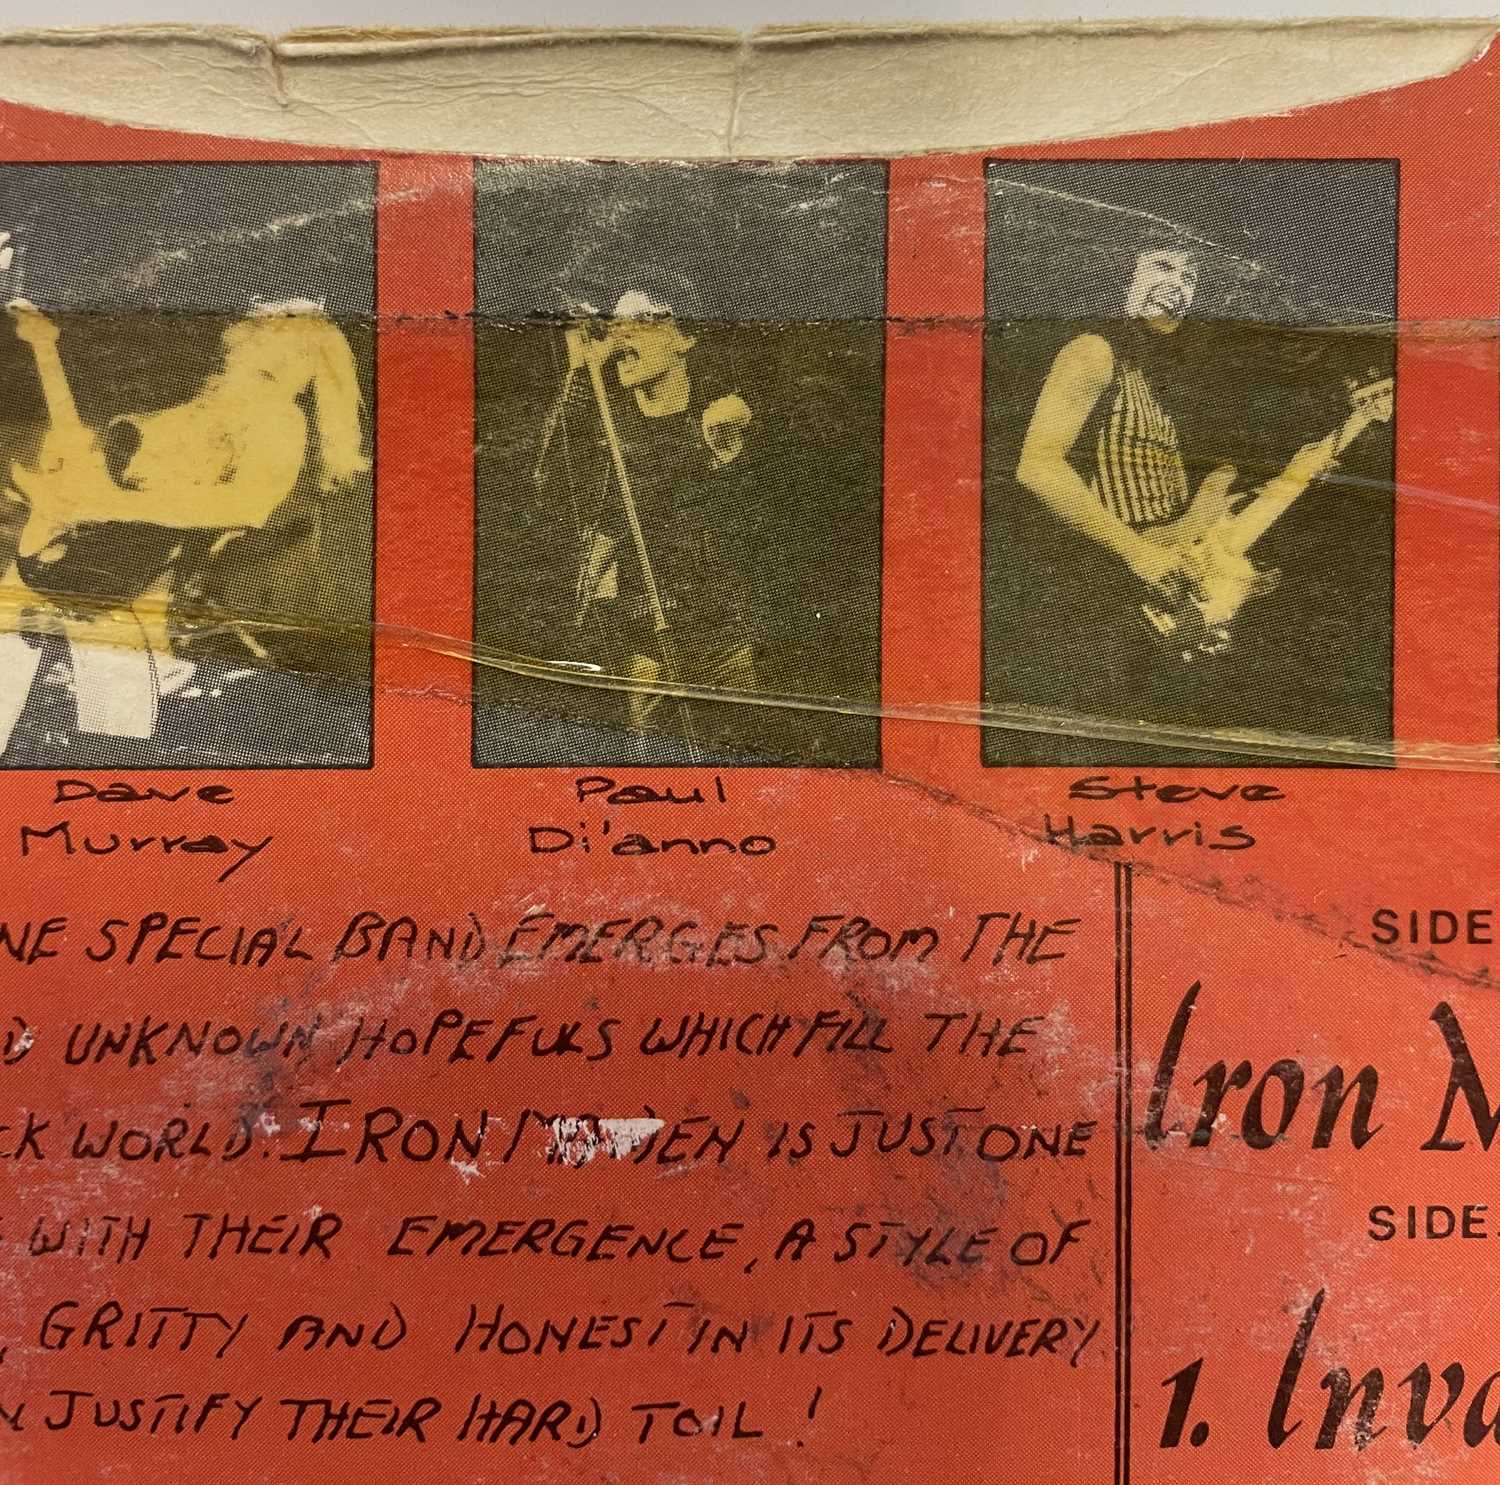 Dave
Murray
Paul
Di'anno
Steve
Harris
NE SPECIAL BAND EMERGES FROM THE
D UNKNOWN HOPEFULS WHICH FILL THE
CK WORLD. IRON MAIDEN IS JUST ONE
WITH THEIR EMERGENCE, A STYLE OF
, GRITTY AND HONEST IN ITS DELIVERY.
N JUSTIFY THEIR HARD TOIL!
SIDE
Iron M
SIDE
1. Inva